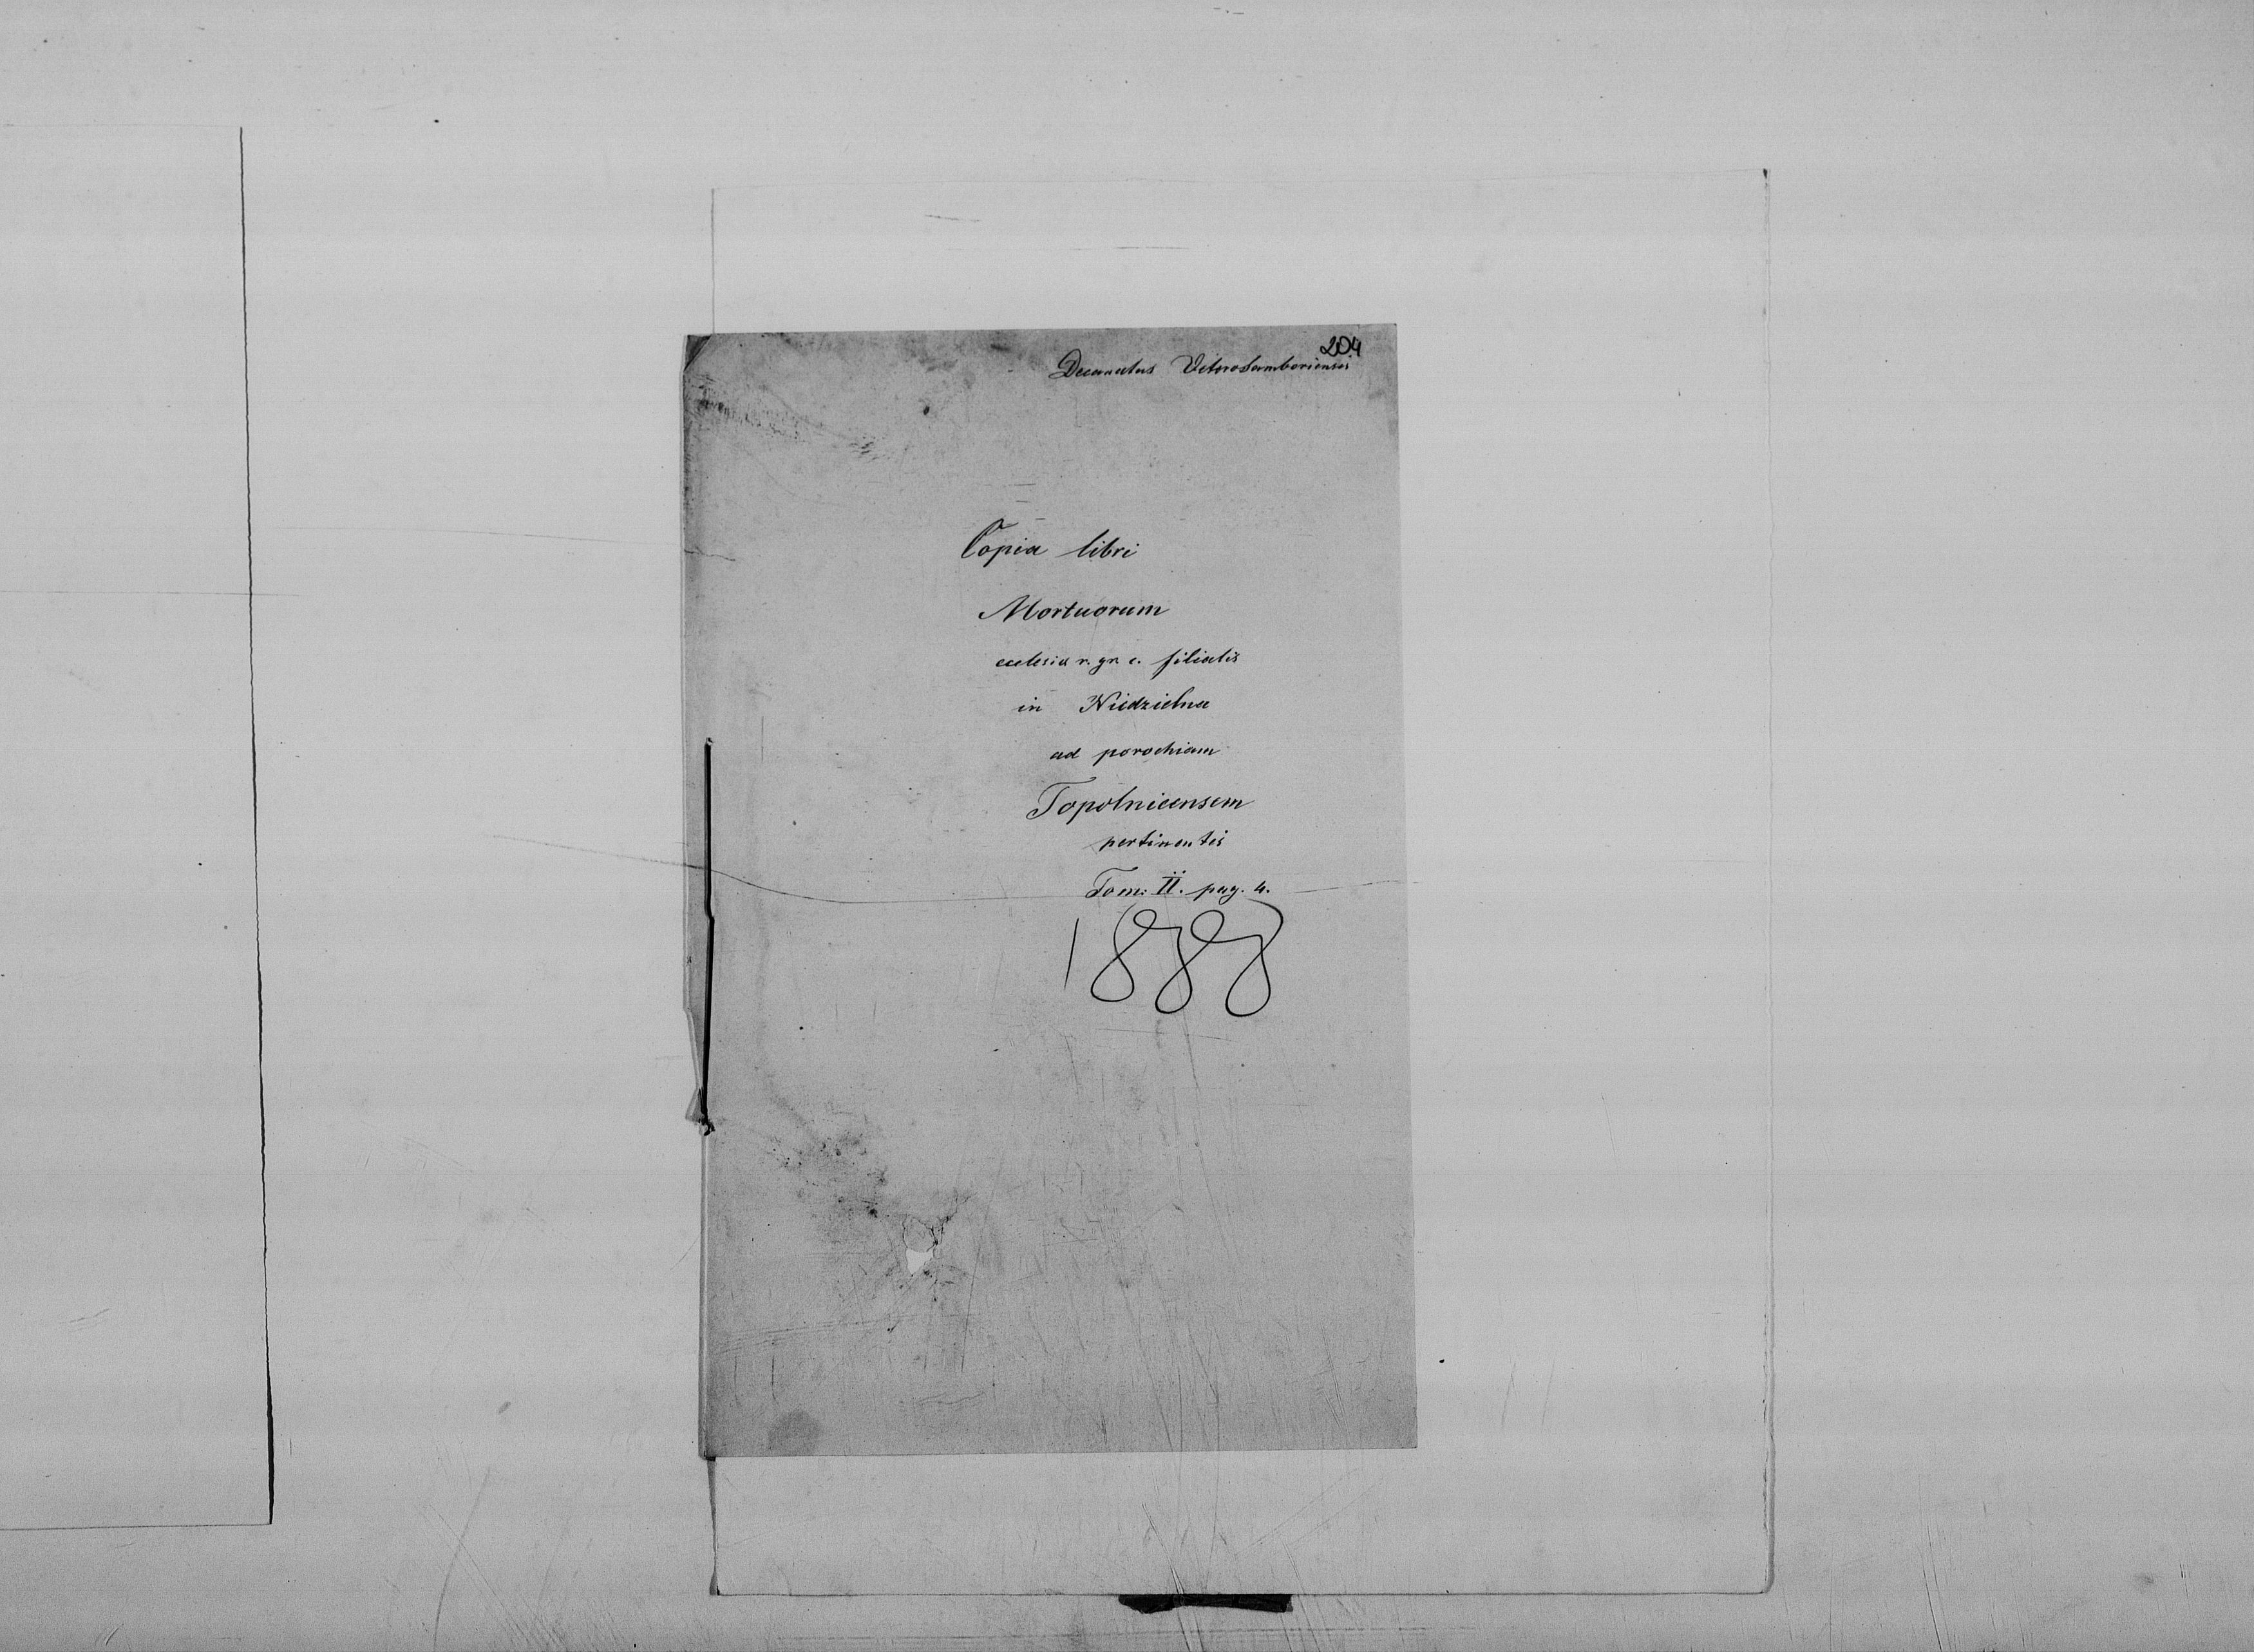 204
Decanatus Veterosamboriensis
Copia libri
Mortuorum
ecclesia r. gr. c. filialis
in Niedzielna
ad parochiam
Topolnicensem
pertinentis
Tom: II. pag. 4.
1888